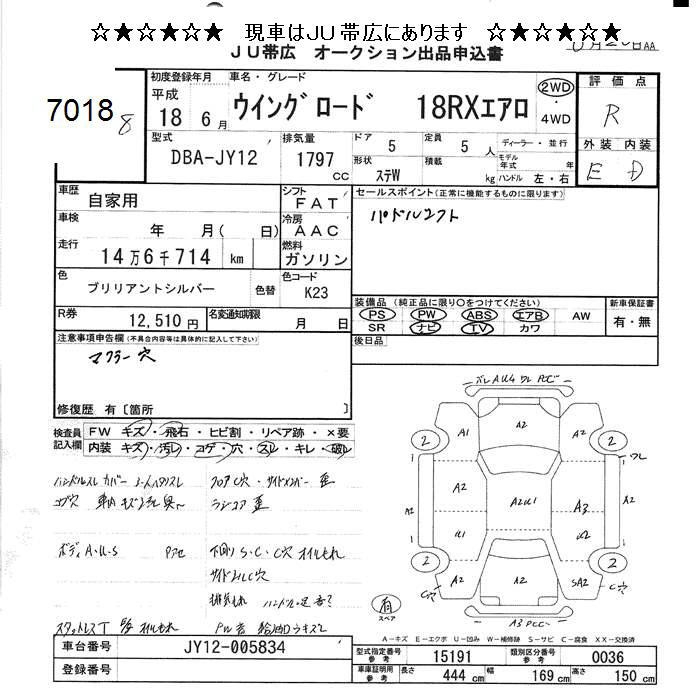 ☆★☆★☆★☆ 現車はJU帯広にあります ☆★☆★☆★☆
JU帯広 オークション出品申込書
AA
7018
8
初度登録年月
平成
18 6月
車名・グレード
ウイングロード 18RXエアロ
2WD
・
4WD
評価点
R
外装 内装
E D
型式
DBA-JY12
排気量
1797
cc
ドア
5
定員
5人
形状
ステW
積載
kg
ディーラー・並行
モデル年式 年
ハンドル 左・右
車歴
自家用
シフト
FAT
車検
年 月( 日)
冷房
AAC
走行
14万6千714 km
燃料
ガソリン
色
ブリリアントシルバー
色替
色コード
K23
R券
12,510円
名変通知期限
月 日
セールスポイント(正常に機能するものに限ります)
パドルシフト
装備品(純正品に限り○をつけてください)
PS PW ABS エアB AW
SR ナビ TV カワ
新車保証書
有・無
後日品
注意事項申告欄(不具合内容等は具体的に記入して下さい)
マフラー穴
修復歴 有〔箇所 〕
検査員記入欄
FW キズ・飛石・ヒビ割・リペア跡・×要
内装 キズ・汚レ・コゲ・穴・スレ・キレ・破レ
ハンドルスレ カバー
コゲ穴
フロアC穴・サイドメンバー歪
ラジコア歪
ボディA・U・S
下廻りS・C・C穴オイルもれ
サイドシルC穴
排気もれ
スタットレスT
オイルもれ
A1
A2
A2
A2
A2U1
A3
U1
U2
A2
A2
SA2
A2
2
2
2
2
ワレ
C穴
C穴
A3 PCC
有
スペア
A-キズ E-エクボ U-凹み W-補修跡 S-サビ C-腐食 XX-交換済
車台番号
JY12-005834
登録番号
型式指定番号
参考
15191
類別区分番号
参考
0036
車体証明用
参考
長さ
444 cm
幅
169 cm
高さ
150 cm